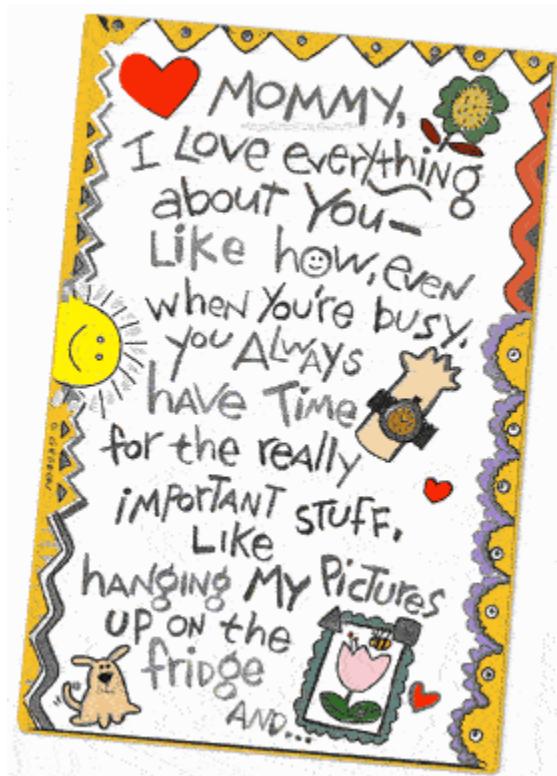 MOMMY,
I LOVE everything
about You—
Like how, even
when You're busy,
you ALWAYS
HAVE Time
for the really
iMPORTANT STUFF,
LIKE
hANGiNG My PicTures
UP ON the
fRiDge
AND...